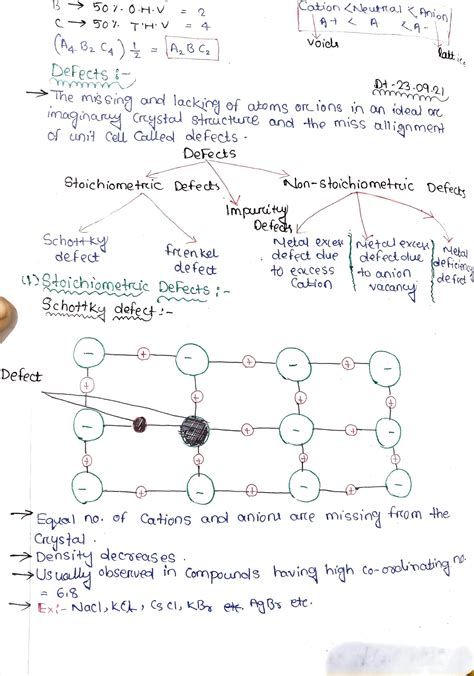 B → 50% O.H.V = 2
C → 50% T.H.V = 4
(A4 B2 C4) 1/2 = A2 B C2
Cation < Neutral < Anion
A+ < A < A-
Voids
Defects :-
Dt-23.09.21
→ The missing and lacking of atoms or ions in an ideal or
imaginary crystal structure and the miss allignment
of unit cell called defects.
Defects
Stoichiometric Defects
Impurity Defects
Non-stoichiometric Defects
Schottky defect
frenkel defect
Metal exces defect due to excess Cation
Metal excess defect due to anion vacancy
Metal deficiency defect
(1) Stoichiometric Defects :-
Schottky defect :-
- + - + - + -
+ + + +
Defect
- - + -
+ + + +
- + - + - + -
→ Equal no. of Cations and anions are missing from the
Crystal.
→ Density decreases.
→ Usually observed in compounds having high co-ordinating no.
= 6,8
→ Ex:- NaCl, KCl, CsCl, KBr etc. AgBr etc.